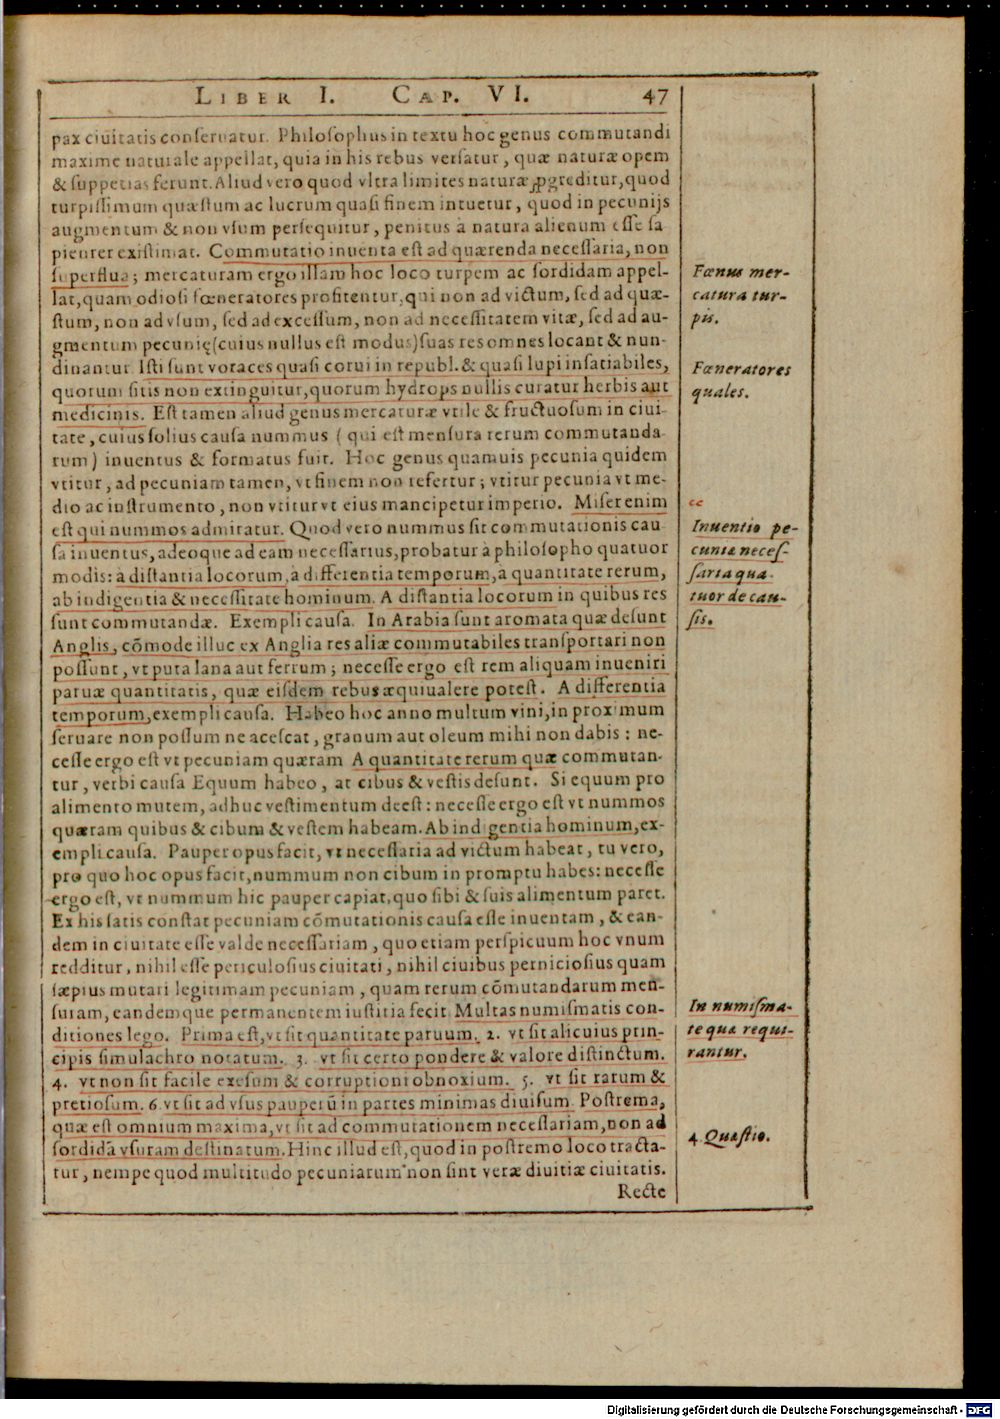 LIBER I. CAP. VI. 47
pax ciuitatis conſeruatur. Philoſophus in textu hoc genus commutandi
maxime naturale appellat, quia in his rebus verſatur, quæ naturæ opem
& ſuppetias ferunt. Aliud vero quod vltra limites naturæ ꝓgreditur, quod
turpiſſimum quæſtum ac lucrum quaſi finem intuetur, quod in pecunijs
augmentum & non vſum perſequitur, penitus à natura alienum eſſe ſa
pienter exiſtimat. Commutatio inuenta eſt ad quærenda neceſſaria, non
ſuperflua; mercaturam ergo illam hoc loco turpem ac ſordidam appel-
lat, quam odioſi fœneratores profitentur, qui non ad victum, ſed ad quæ-
ſtum, non ad vſum, ſed ad exceſſum, non ad neceſſitatem vitæ, ſed ad au-
gmentum pecunię (cuius nullus eſt modus) ſuas res omnes locant & nun-
dinantur. Iſti ſunt voraces quaſi corui in republ. & quaſi lupi inſatiabiles,
quorum ſitis non extinguitur, quorum hydrops nullis curatur herbis aut
medicinis. Eſt tamen aliud genus mercaturæ vtile & fructuoſum in ciui-
tate, cuius ſolius cauſa nummus (qui eſt menſura rerum commutanda
rum) inuentus & formatus fuit. Hoc genus quamuis pecunia quidem
vtitur, ad pecuniam tamen, vt finem non refertur; vtitur pecunia vt me-
dio ac inſtrumento, non vtitur vt eius mancipetur imperio. Miſer enim
eſt qui nummos admiratur. Quod vero nummus ſit commutationis cau
ſa inuentus, adeoque ad eam neceſſarius, probatur à philoſopho quatuor
modis: à diſtantia locorum, à differentia temporum, a quantitate rerum,
ab indigentia & neceſſitate hominum. A diſtantia locorum in quibus res
ſunt commutandæ. Exempli cauſa. In Arabia ſunt aromata quæ deſunt
Anglis, cōmode illuc ex Anglia res aliæ commutabiles tranſportari non
poſſunt, vt puta lana aut ferrum; neceſſe ergo eſt rem aliquam inueniri
paruæ quantitatis, quæ eiſdem rebus æquiualere poteſt. A differentia
temporum, exempli cauſa. Habeo hoc anno multum vini, in proximum
ſeruare non poſſum ne aceſcat, granum aut oleum mihi non dabis: ne-
ceſſe ergo eſt vt pecuniam quæram A quantitate rerum quæ commutan-
tur, verbi cauſa Equum habeo, at cibus & veſtis deſunt. Si equum pro
alimento mutem, adhuc veſtimentum deeſt: neceſſe ergo eſt vt nummos
quæram quibus & cibum & veſtem habeam. Ab indigentia hominum, ex-
empli cauſa. Pauper opus facit, vt neceſſaria ad victum habeat, tu vero,
pro quo hoc opus facit, nummum non cibum in promptu habes: neceſſe
ergo eſt, vt nummum hic pauper capiat, quo ſibi & ſuis alimentum paret.
Ex his ſatis conſtat pecuniam cōmutationis cauſa eſſe inuentam, & ean-
dem in ciuitate eſſe valde neceſſariam, quo etiam perſpicuum hoc vnum
redditur, nihil eſſe periculoſius ciuitati, nihil ciuibus pernicioſius quam
ſæpius mutari legitimam pecuniam, quam rerum cōmutandarum men-
ſuram, eandemque permanentem iuſtitia fecit. Multas numiſmatis con-
ditiones lego. Prima eſt, vt ſit quantitate paruum. 2. vt ſit alicuius prin-
cipis ſimulachro notatum. 3. vt ſit certo pondere & valore diſtinctum.
4. vt non ſit facile exeſum & corruptioni obnoxium. 5. vt ſit rarum &
pretioſum. 6 vt ſit ad vſus pauperū in partes minimas diuiſum. Poſtrema,
quæ eſt omnium maxima, vt ſit ad commutationem neceſſariam, non ad
ſordidā vſuram deſtinatum. Hinc illud eſt, quod in poſtremo loco tracta-
tur, nempe quod multitudo pecuniarum non ſint veræ diuitiæ ciuitatis.
Recte
Fœnus mer-
catura tur-
pis.
Fœneratores
quales.
Inuentio pe-
cuniæ neceſ-
ſaria qua-
tuor de cau-
ſis.
In numiſma-
te quæ requi-
rantur.
4 Quæſtio.
Digitalisierung gefördert durch die Deutsche Forschungsgemeinschaft - DFG